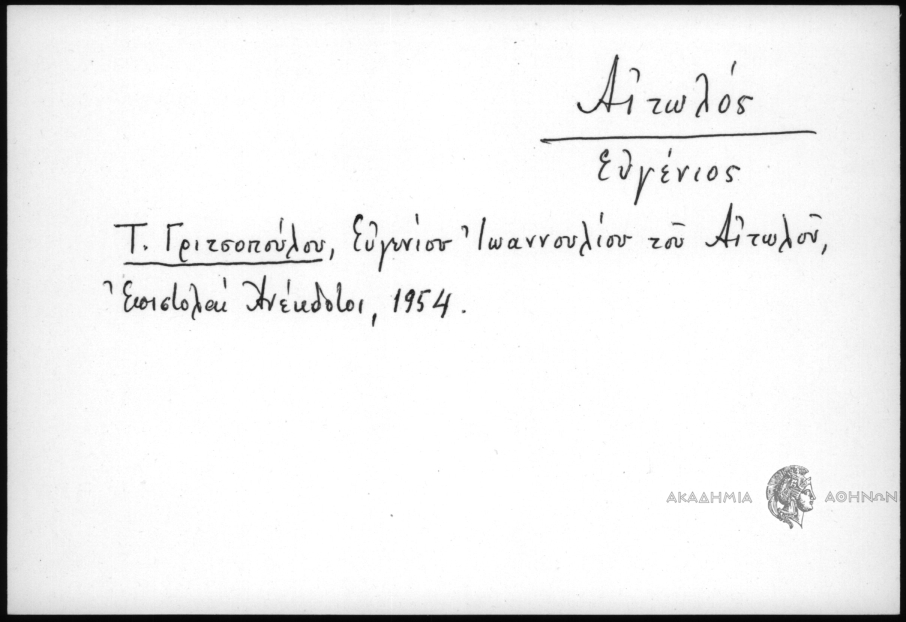 Αἰτωλός
Εὐγένιος
Τ. Γριτσοπούλου, Εὐγενίου Ἰωαννουλίου τοῦ Αἰτωλοῦ,
Ἐπιστολαὶ Ἀνέκδοτοι, 1954.
ΑΚΑΔΗΜΙΑ ΑΘΗΝΩΝ